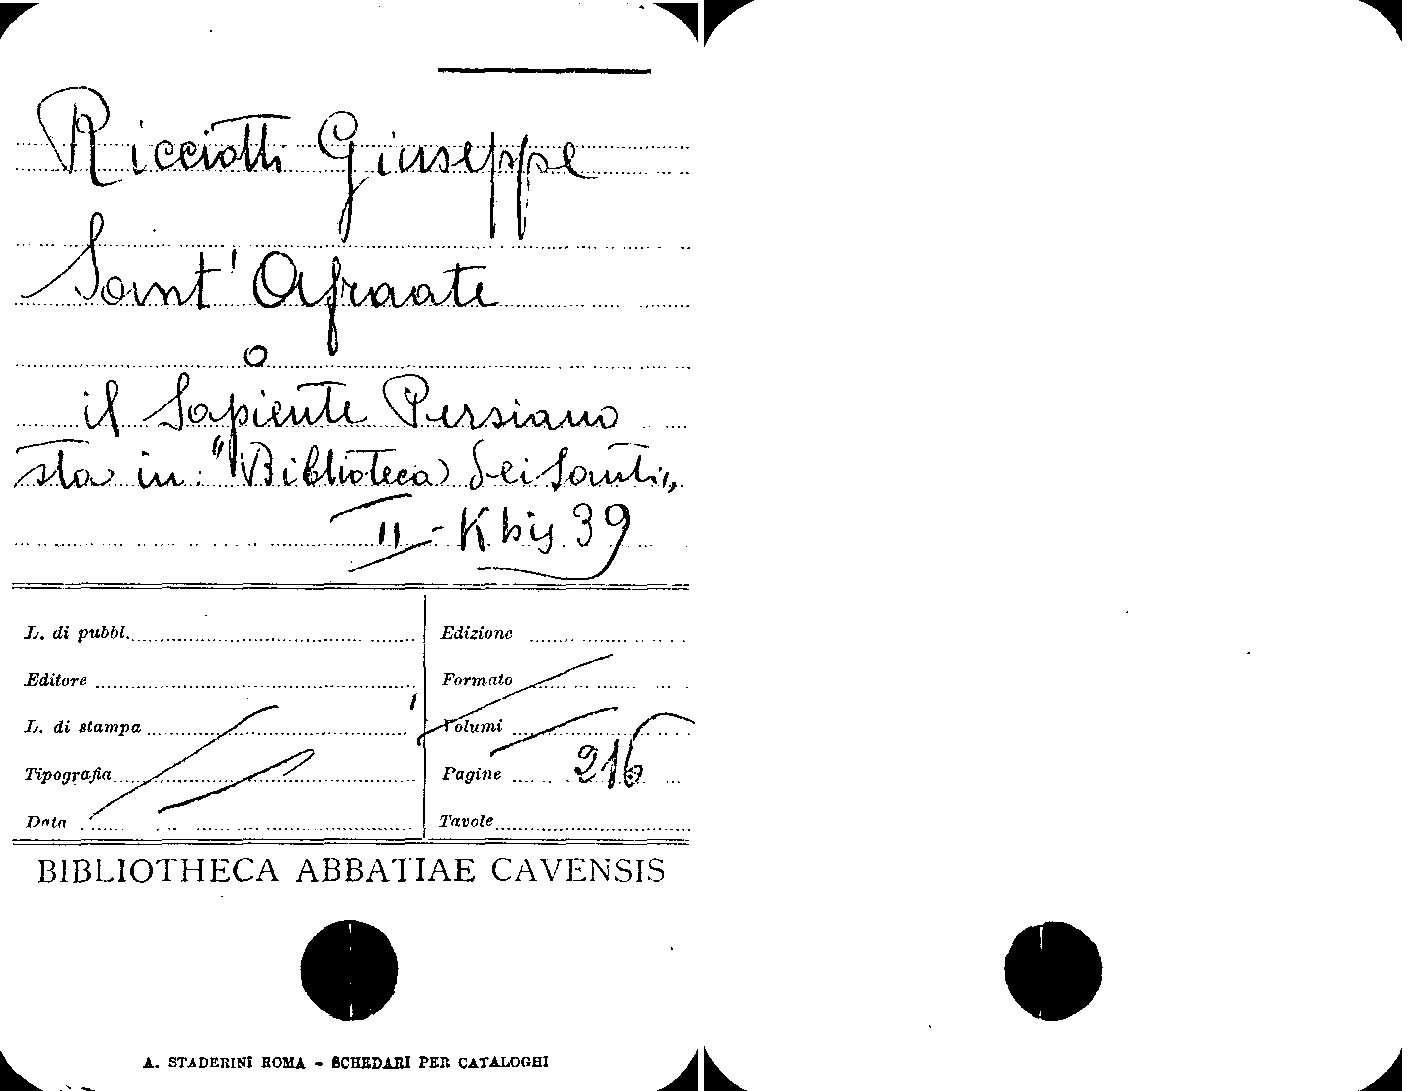 Ricciotti Giuseppe
Sant' Afraate
o
il Sapiente Persiano
sta in: "Biblioteca dei Santi„
II - K bis 39
L. di pubbl.
Editore
L. di stampa
Tipografia
Data
Edizione
Formato
Volumi
Pagine 216
Tavole
BIBLIOTHECA ABBATIAE CAVENSIS
A. STADERINI ROMA - SCHEDARI PER CATALOGHI